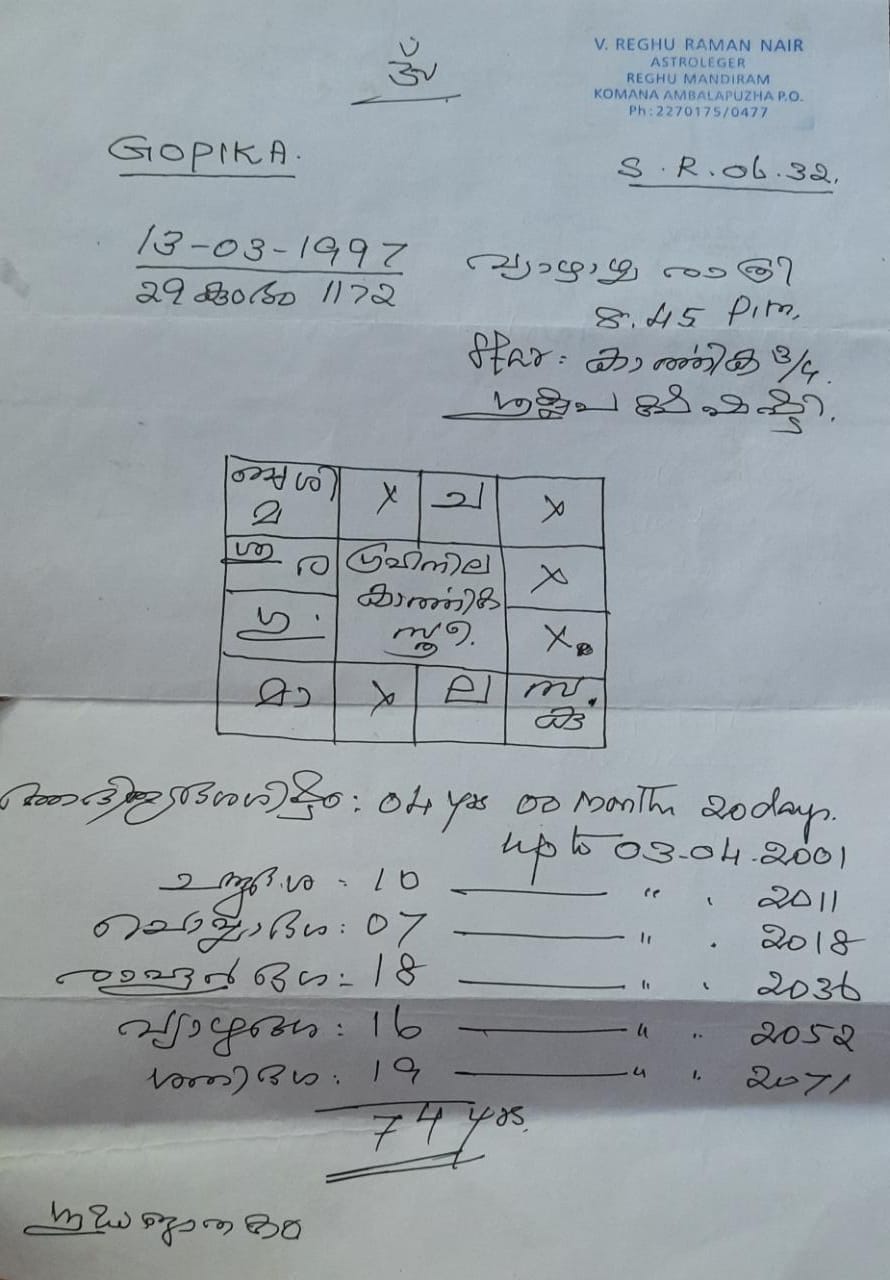 ഓം
V. REGHU RAMAN NAIR
ASTROLEGER
REGHU MANDIRAM
KOMANA AMBALAPUZHA P.O.
Ph:2270175/0477
GOPIKA.
S.R.06.32.
13-03-1997
29 കുംഭം 1172
വ്യാഴാഴ്ച രാത്രി
8.45 P.m.
Star: കാർത്തിക 3/4.
x ച x
മ
ശു ര ഗ്രഹനില x
കാർത്തിക
ഗു. സ്ത്രീ. x
മാ x ല
: 04 yrs 00 month 20 days.
up to 03-04-2001
ചന്ദ്രദശ = 10 " , 2011
ചൊവ്വാദശ: 07 " . 2018
രാഹുർ ദശ:- 18 " , 2036
വ്യാഴദശ: 16 " " 2052
ശനിദശ: 19 " " 2071
74 yrs.